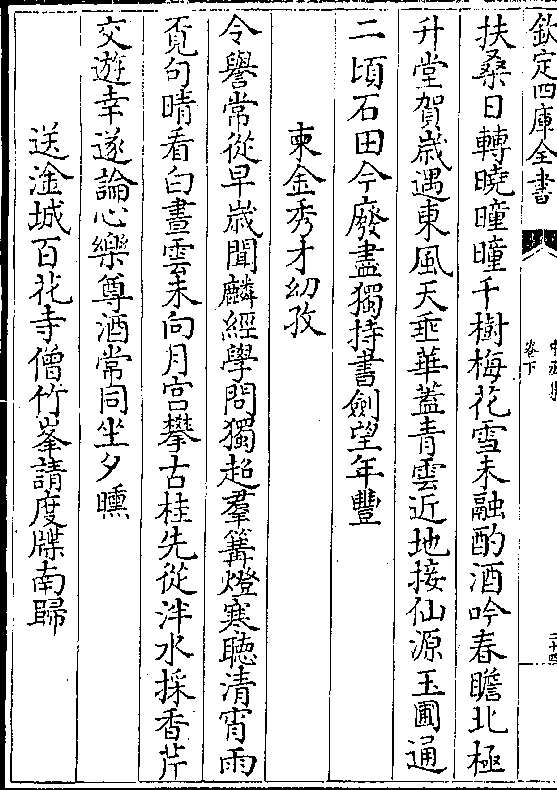 欽定四庫全書
卷下
扶桑日轉曉曈曈千樹梅花雪未融酌酒吟春瞻北極
升堂賀歲遇東風天垂華蓋青雲近地接仙源玉圃通
二頃石田今廢盡獨持書劍望年豐
柬金秀才幼孜
令譽常從早歲聞麟經學問獨超羣篝燈寒聽清宵雨
覓句晴看白晝雲未向月宮攀古桂先從泮水採香芹
交遊幸遂論心樂尊酒常同坐夕曛
送淦城百花寺僧竹峯請度牒南歸